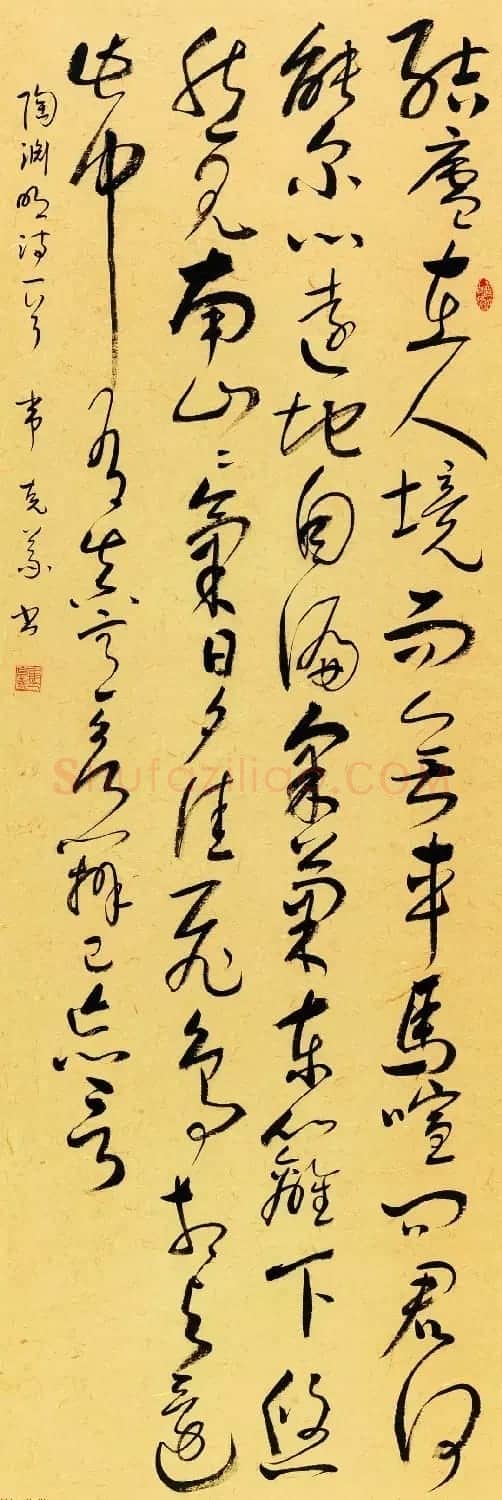 結廬在人境而無車馬喧問君何
能尔心遠地自偏采菊東籬下悠
然見南山〻氣日夕佳飛鳥相與還
此中有真意欲辨已忘言
陶渊明詩一首 韦克義书
Shufaziliao.COM